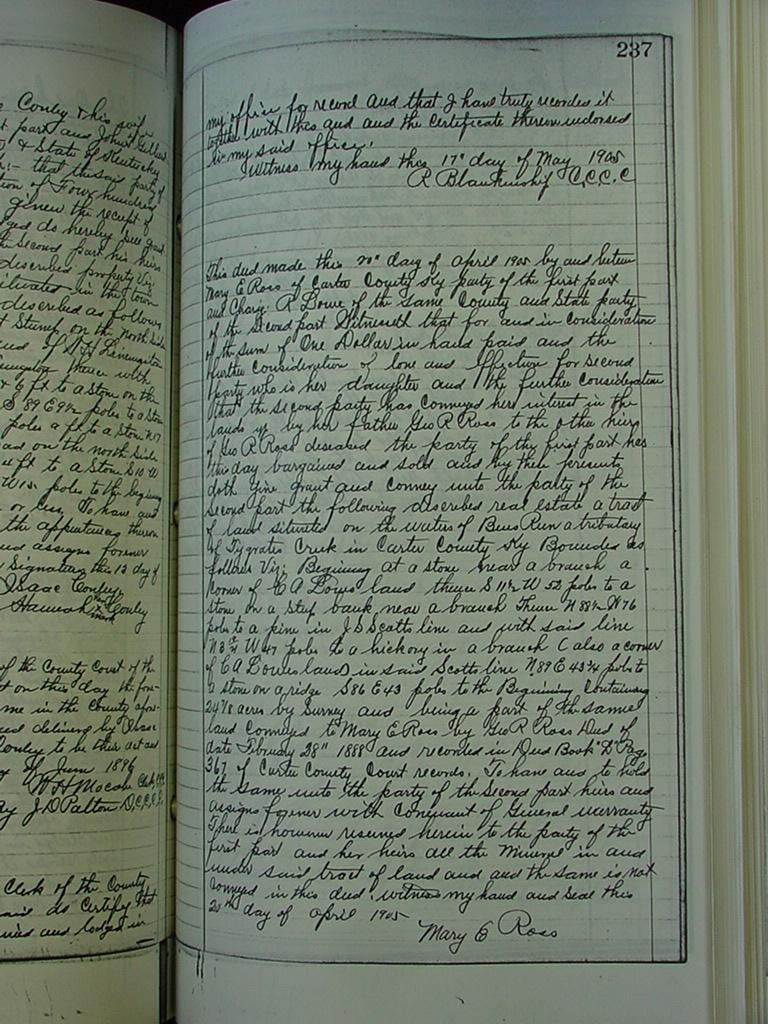 Conley & his wife
t part and John Gilbert
& State of Kentucky
:- that the said party of
tion of Four hundred
given the receipt of
ged do hereby
the Second part his heirs
described property Viz:
situated in the town
described as follows
t Stump on the North Side
thence with
& 6 ft to a Stone on the
S 89 E 9½ poles to a Stone
poles a ft to a Stone N 17
ad on the north Side
ft to a Stone S 10 W
W 15 poles to the beginning
or less. To have and
the appurtenances thereon
and assigns forever
Signatures this 13 day of
Isaac Conley
Hannah her mark Conley
of the County Court of the
t on this day the fore-
me in the County afore-
and delivered by Isaac
Conley to be their act and
of June 1896
W H Mocabee
By J D Patton D.C.
Clerk of the County
do Certify that
and lodged in
237
my office for record and that I have truly recorded it
together with this and and the Certificate thereon indorsed
in my said office.
Witness my hand this 17" day of May 1905
R Blankenship C.C.C.C
This deed made this 20" day of April 1905 by and between
Mary E Ross of Carter County Ky party of the first part
and R Lowe of the same County and State party
of the second part Witnesseth that for and in consideration
of the sum of One Dollar in hand paid and the
further Consideration of love and affection for second
party who is her daughter and the further consideration
that the second party has conveyed her interest in the
lands of by her father Geo R Ross to the other heirs
of Geo R Ross deceased the party of the first part has
this day bargained and sold and by these presents
doth give grant and convey unto the party of the
second part the following described real estate a tract
of land situated on the waters of Bens Run a tributary
of Tygrates Creek in Carter County Ky Bounded as
follows Viz; Beginning at a stone near a branch a
corner of E A Lowes land thence S 11½ W 52 poles to a
stone on a step bank near a branch Thence N 88½ W 76
poles to a pine in J D Scotts line and with said line
N 3 W 47 poles to a hickory in a branch (also a corner
of E A Lowes land) in said Scotts line N 89 E 43¾ poles to
a stone on a ridge S 86 E 43 poles to the Beginning Containing
24⅞ acres by Survey and being a part of the same
land conveyed to Mary E Ross by Geo R Ross Deed of
date February 28" 1888 and recorded in Deed Book "D" Page
367 of Carter County Court records. To have and to hold
the same unto the party of the second part heirs and
assigns forever with Covenant of General warranty
There is however reserved herein to the party of the
first part and her heirs all the Mineral in and
under said tract of land and and the same is not
conveyed in this deed. witness my hand and seal this
20th day of April 1905
Mary E Ross